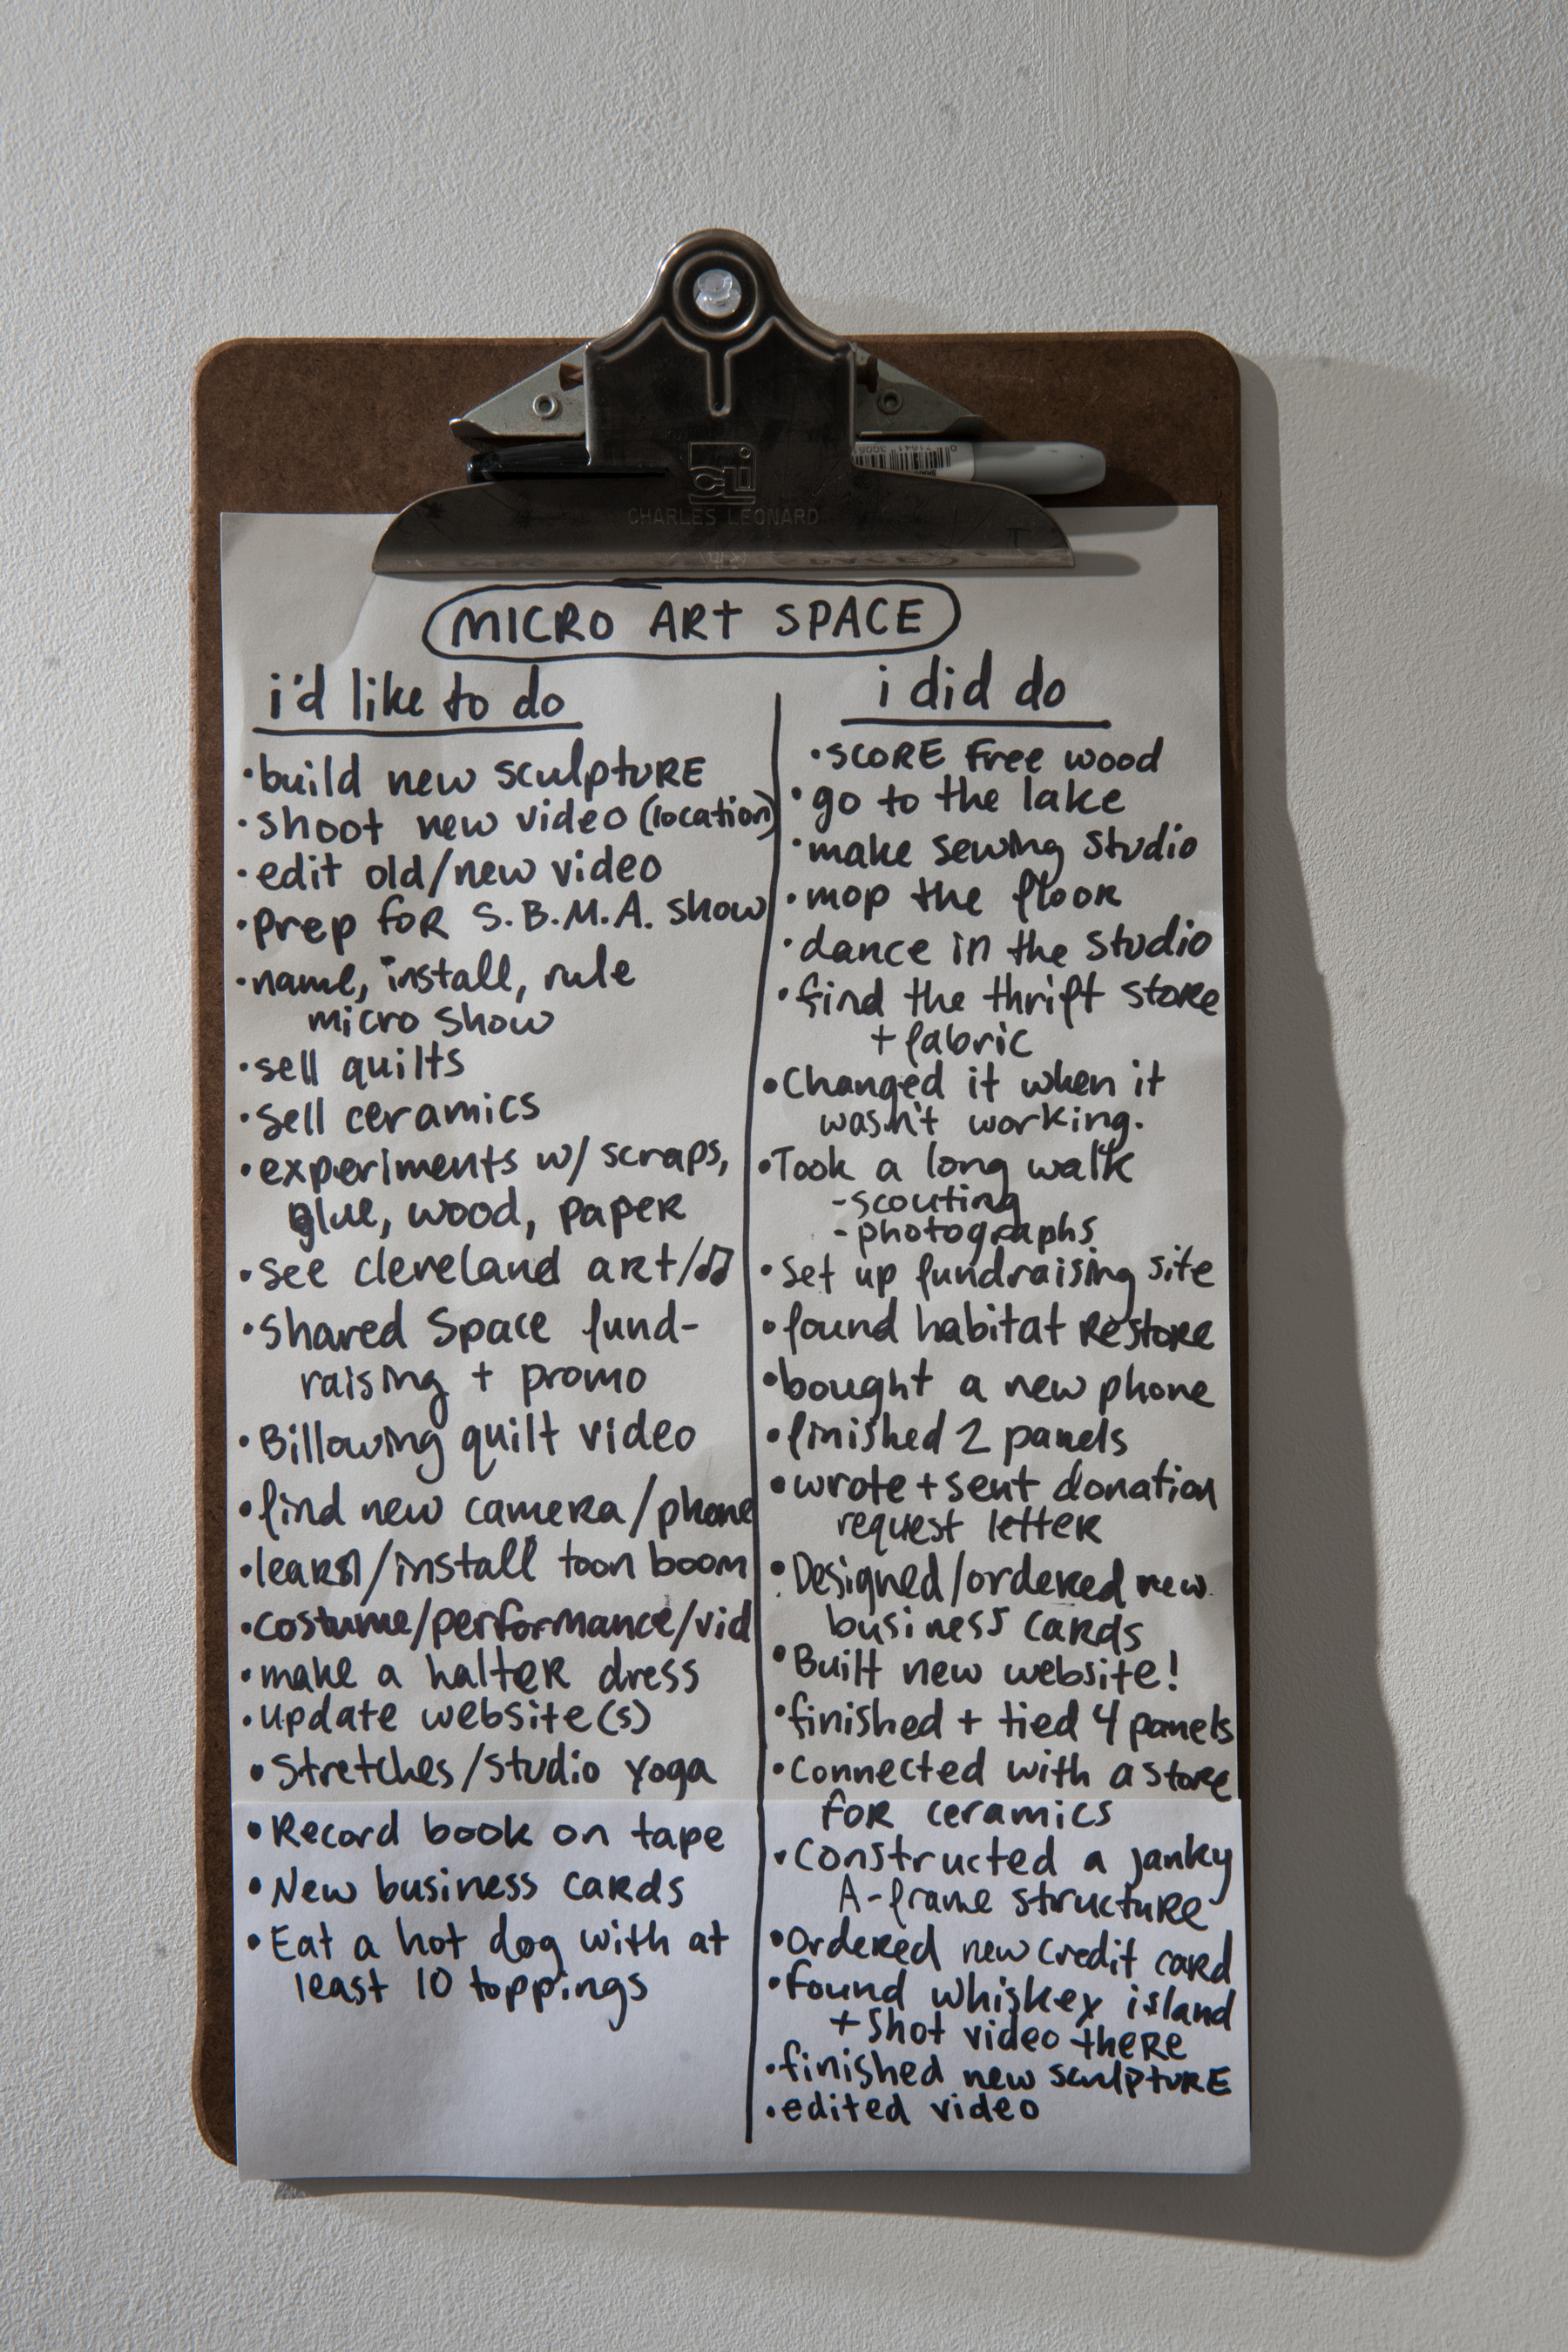 CHARLES LEONARD
MICRO ART SPACE
i'd like to do
•build new sculptURE
•shoot new video (location)
•edit old/new video
•prep foR S.B.M.A. show
•name, install, rule
micro show
•sell quilts
•sell ceramics
•experiments w/ scraps,
glue, wood, papeR
•see cleveland aRt/♫
•shared Space fund-
raising + promo
•Billowing quilt video
•find new cameRa/phone
•leaRn/install toon boom
•costume/peRfoRmance/vid
•make a halteR dress
•update website(s)
•Stretches/studio yoga
•Record book on tape
•New business caRds
•Eat a hot dog with at
least 10 toppings
i did do
•SCORE FRee wood
•go to the lake
•make sewing studio
•mop the flooR
•dance in the studio
•find the thrift stoRe
+ fabric
•Changed it when it
wasn't working.
•Took a long walk
-scouting
-photographs
•Set up fundraising site
•found habitat ReStoRe
•bought a new phone
•finished 2 panels
•wrote + sent donation
request letteR
•Designed/ordeRed new
business caRds
•Built new website!
•finished + tied 4 panels
•Connected with a stoRe
foR ceramics
•Constructed a janky
A-frame structuRe
•OrdeRed new credit card
•found whiskey island
+ shot video theRe
•finished new sculptuRE
•edited video